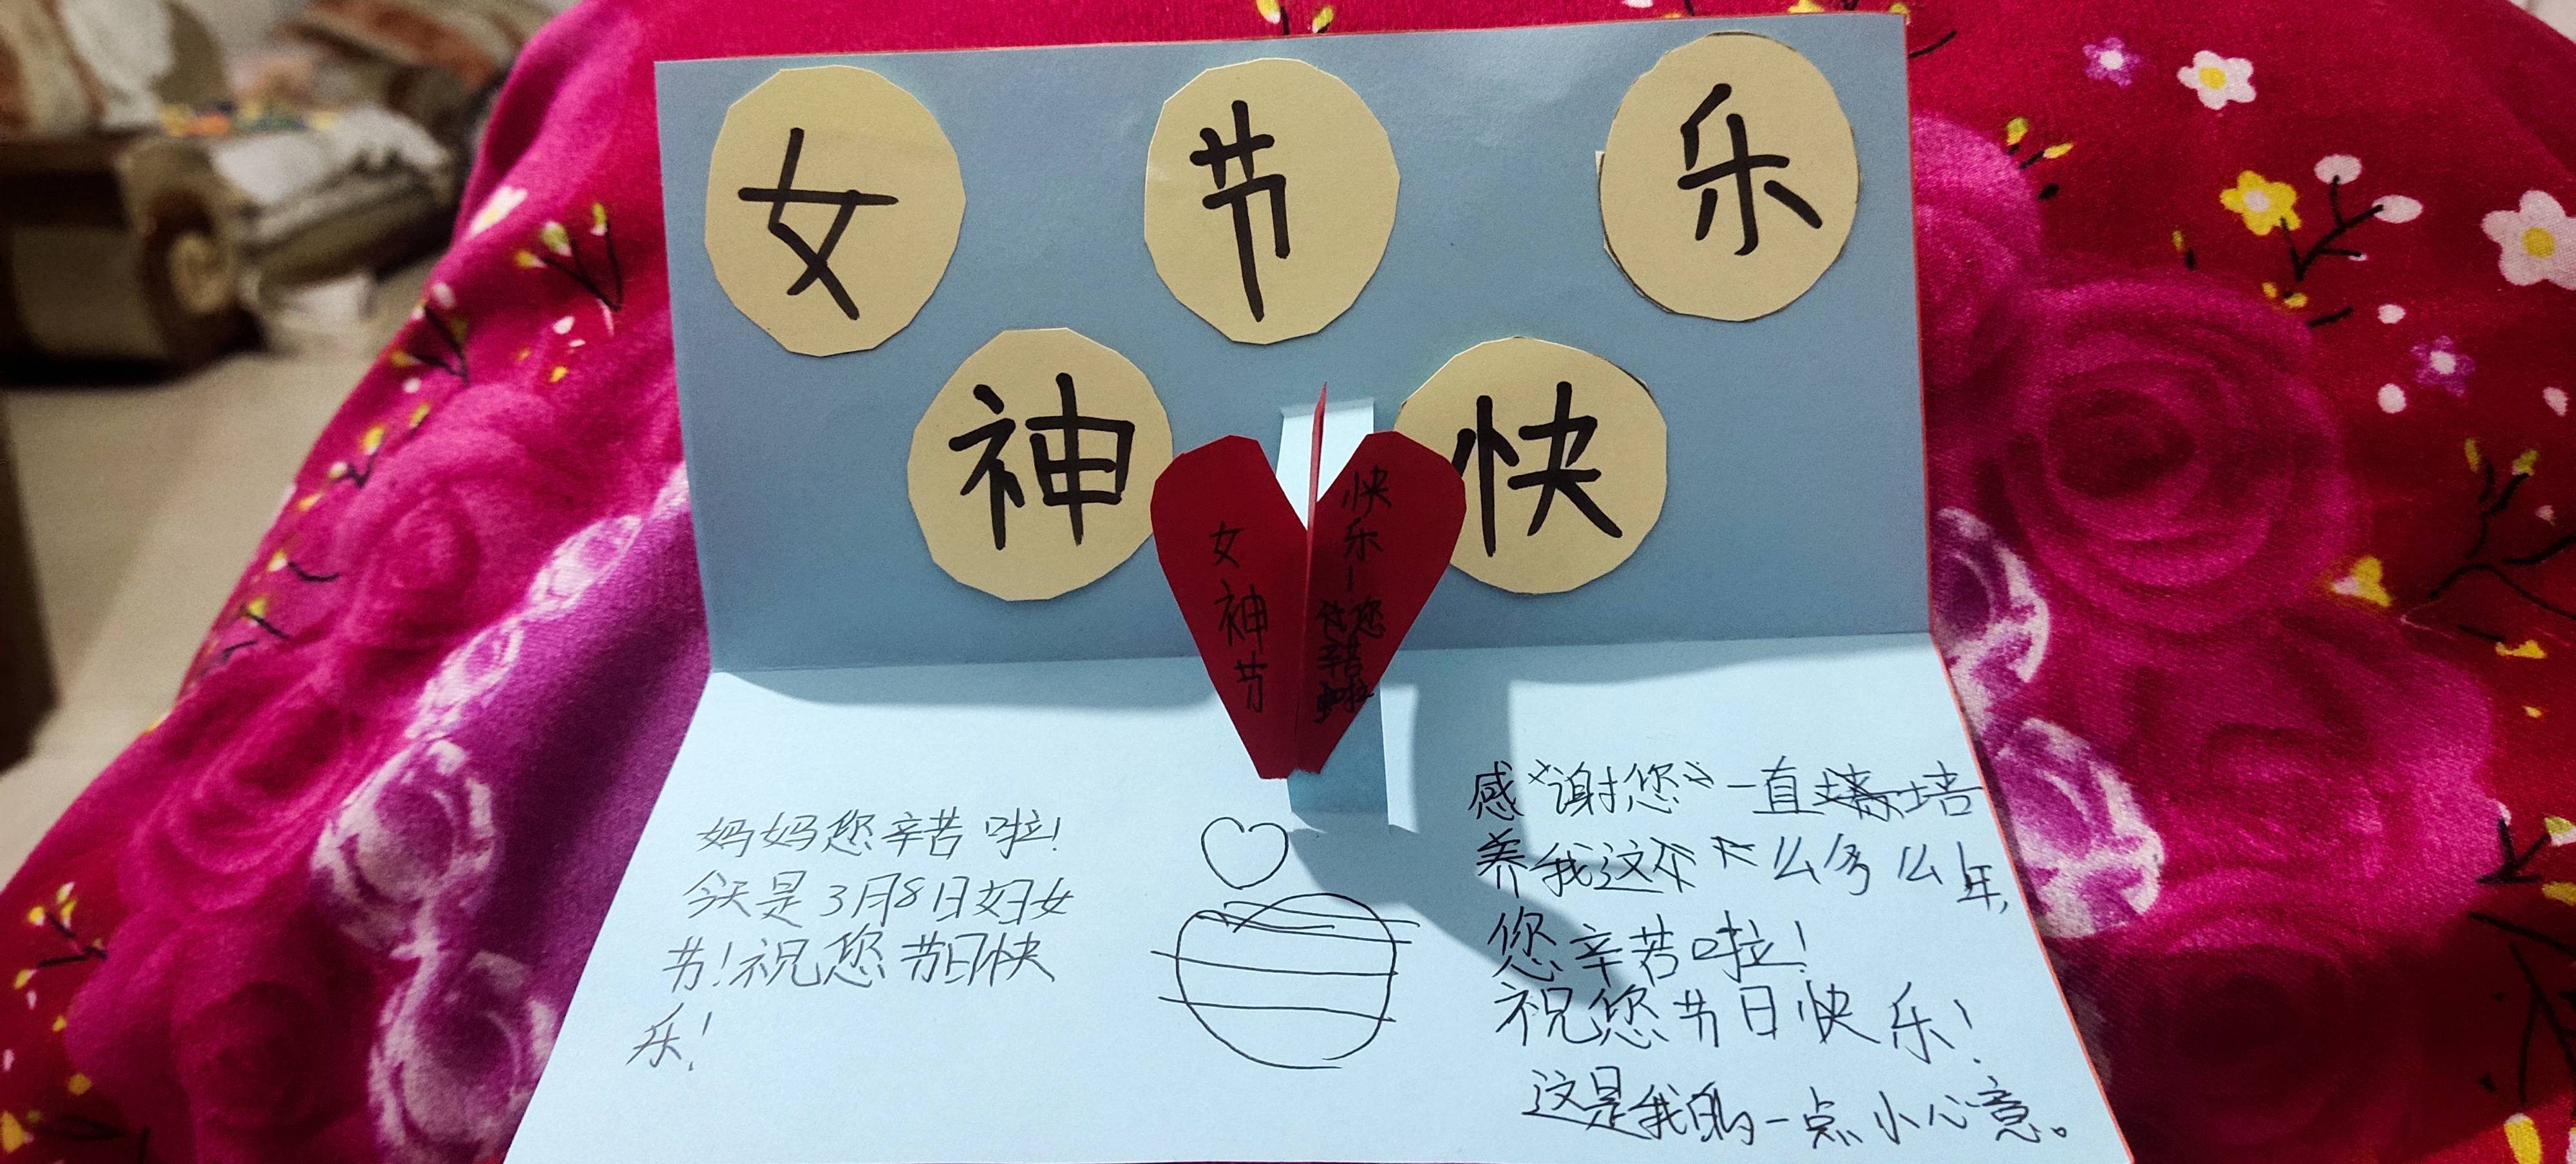 女神节快乐
女神节
快乐!
您
辛苦
啦
妈妈您辛苦啦!
今天是3月8日妇女
节!祝您节日快
乐!
感“谢您”一直培
养我这个么多么年,
您辛苦啦!
祝您节日快乐!
这是我的一点小心意。